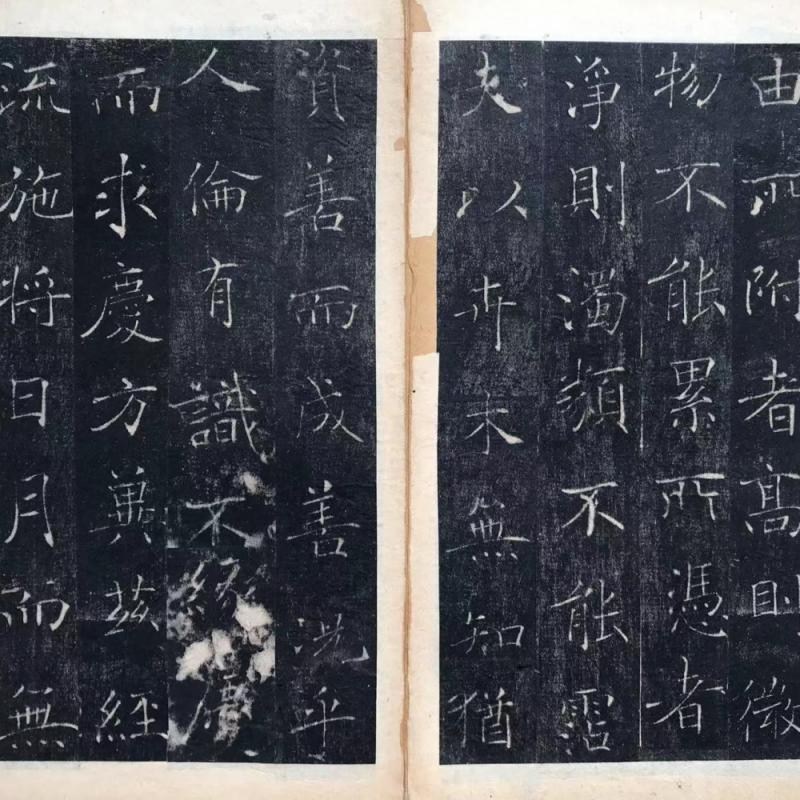 由所附者高則微
物不能累所憑者
淨則濁類不能霑
夫以卉木無知猶
資善而成善況乎
人倫有識不緣慶
而求慶方冀茲經
流施將日月而無